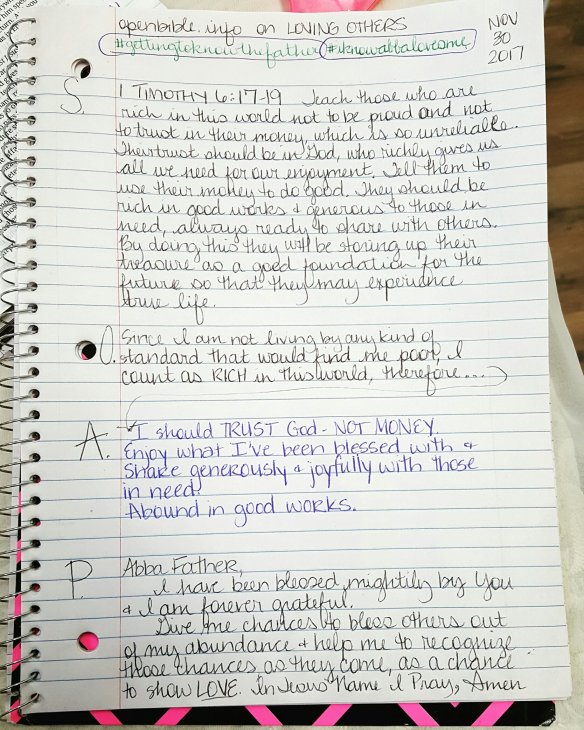 openbible.info on LOVING OTHERS
NOV
30
2017
#gettingtoknowthefather #iknowabbalovesme
S. 1 TIMOTHY 6:17-19 Teach those who are
rich in this world not to be proud and not
to trust in their money, which is so unreliable.
Their trust should be in God, who richly gives us
all we need for our enjoyment. Tell them to
use their money to do good. They should be
rich in good works & generous to those in
need, always ready to share with others.
By doing this they will be storing up their
treasure as a good foundation for the
future so that they may experience
true life.
O. Since I am not living by any kind of
standard that would find me poor, I
count as RICH in this world, therefore...
A. I should TRUST God - NOT MONEY.
Enjoy what I've been blessed with &
share generously & joyfully with those
in need.
Abound in good works.
P. Abba Father,
I have been blessed mightily by You
& I am forever grateful.
Give me chances to bless others out
of my abundance & help me to recognize
those chances as they come, as a chance
to show LOVE. In Jesus' Name I Pray, Amen